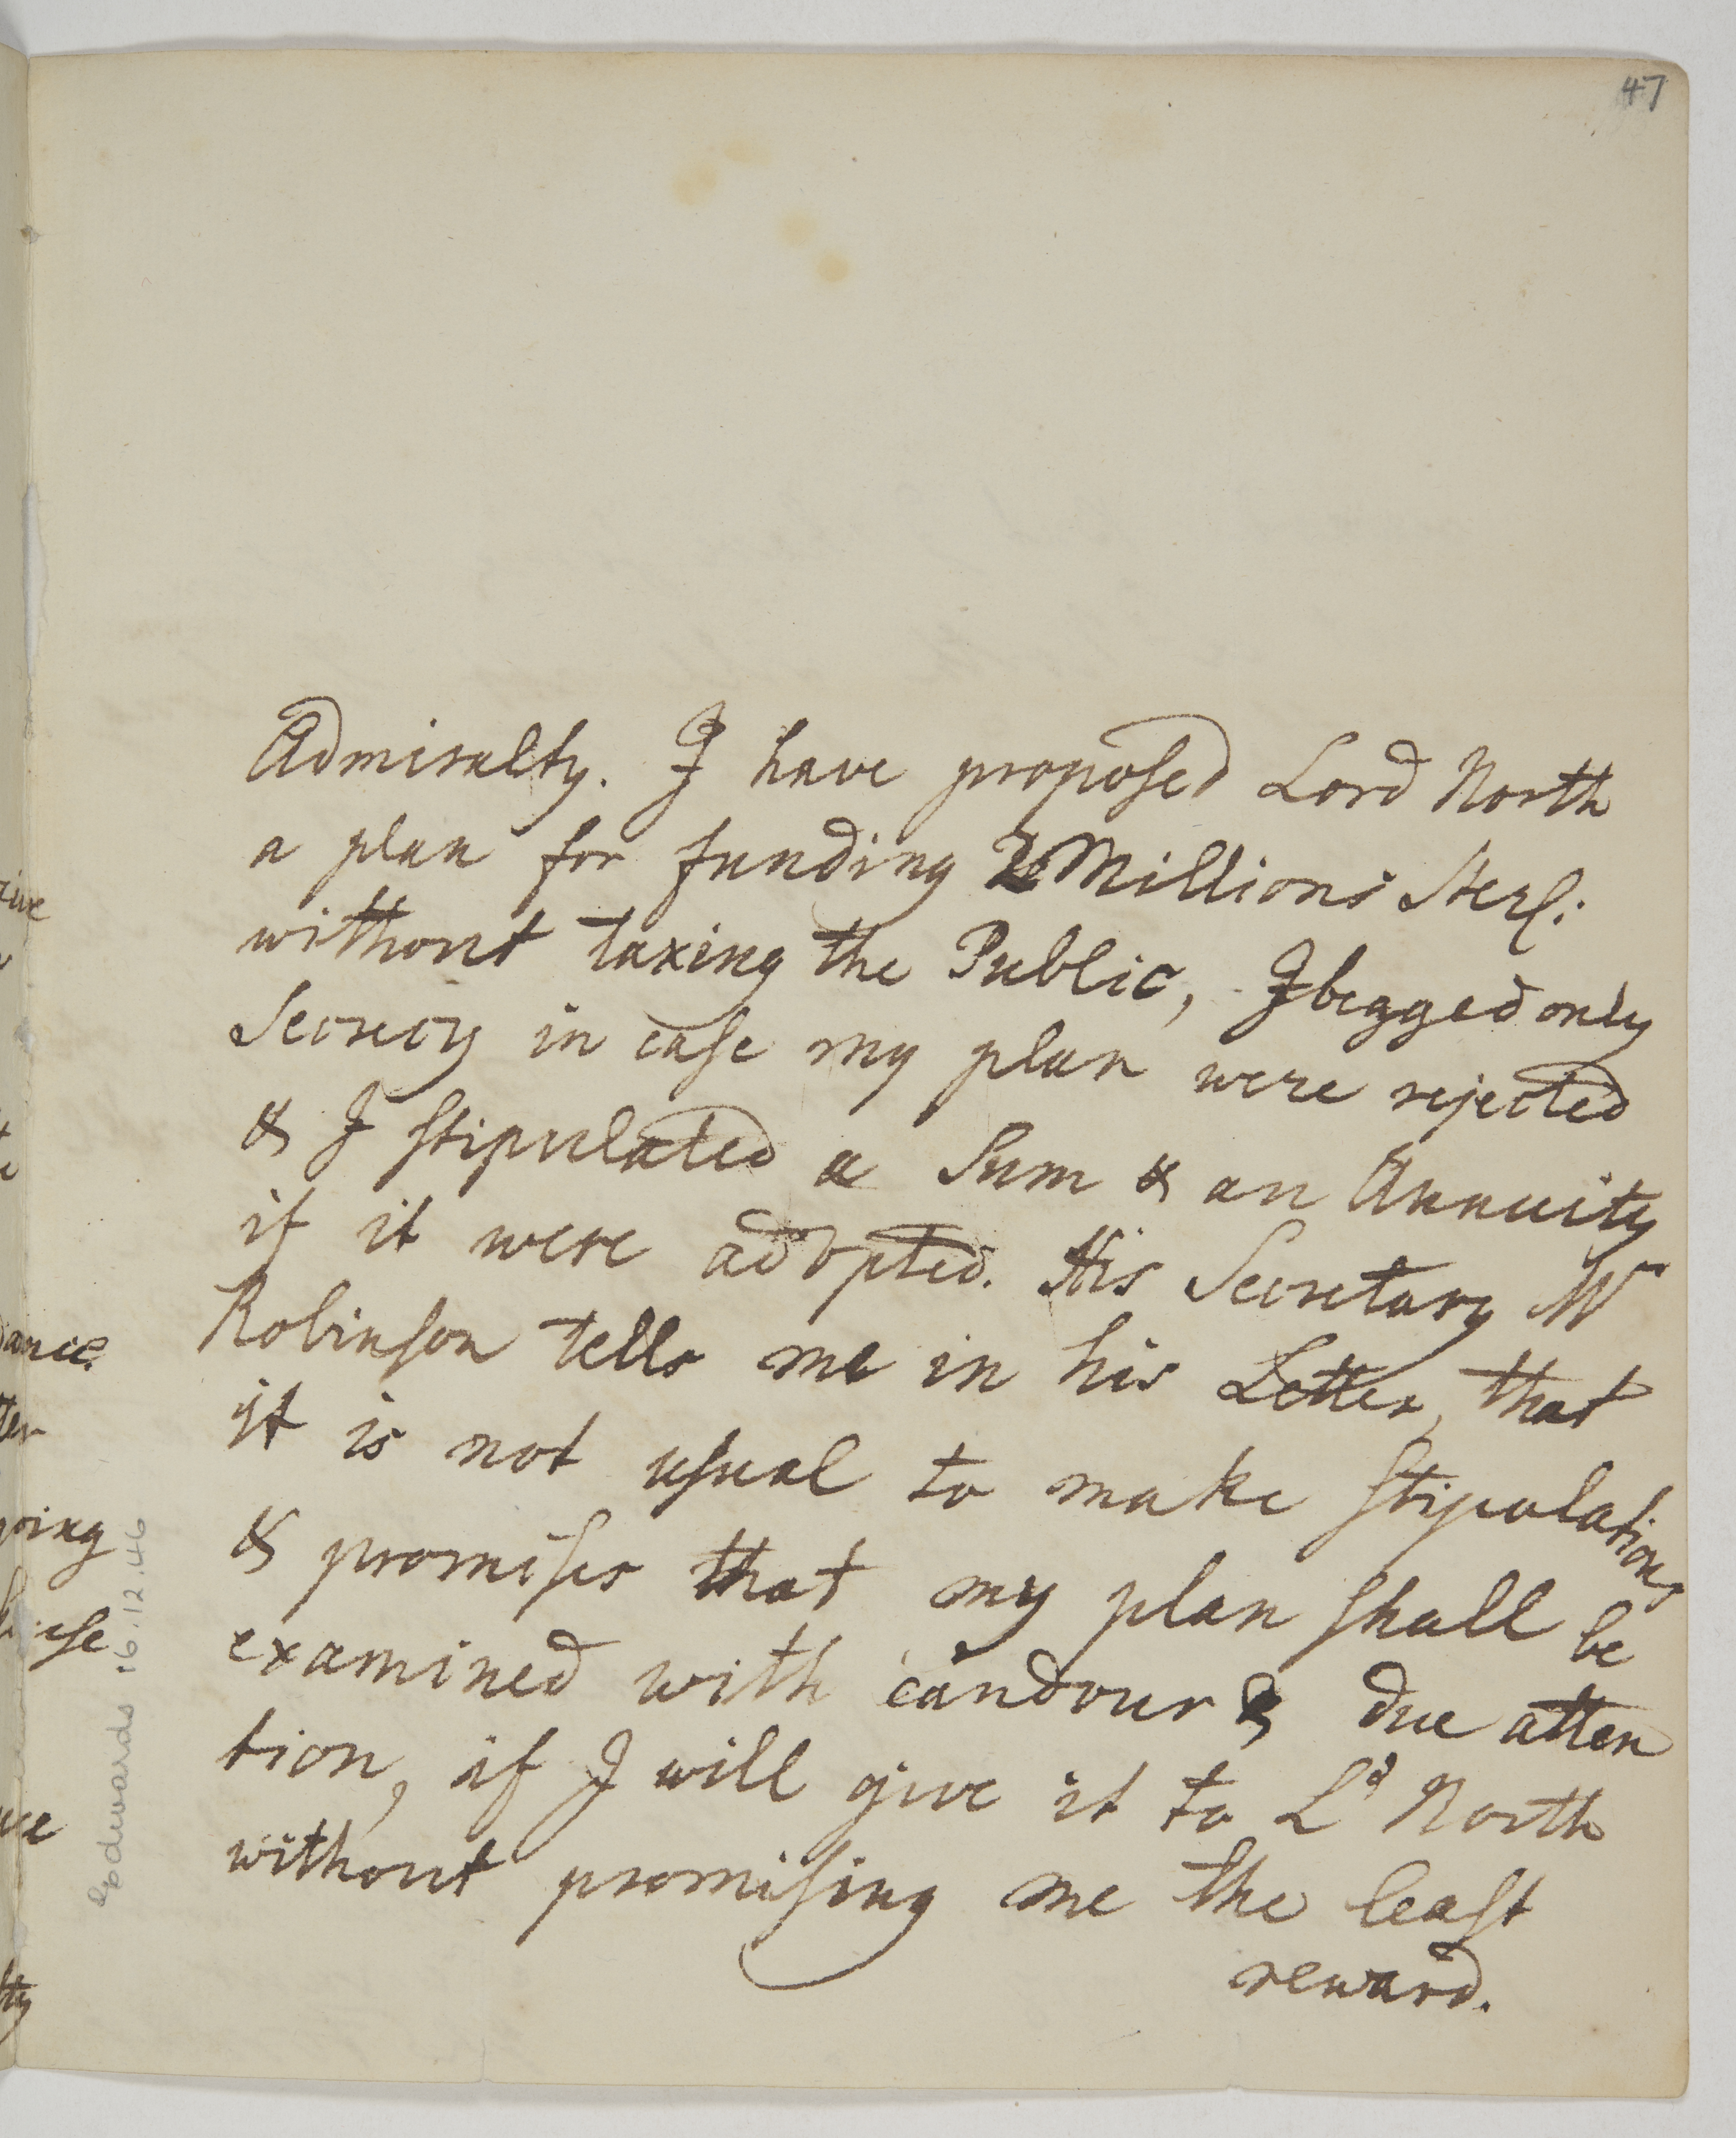 47
Admiralty. I have proposed Lord North
a plan for funding 2 Millions Sterl:
without taxing the Public, I begged only
Secrecy in case my plan were rejected
& I stipulated a Sum & an Annuity
if it were adopted. His Secretary Mr
Robinson tells me in his Letter, that
it is not usual to make stipulations
& promises that my plan shall be
examined with candour & due atten
tion, if I will give it to Ld North
without promising me the least
reward.
Edwards 16.12.46